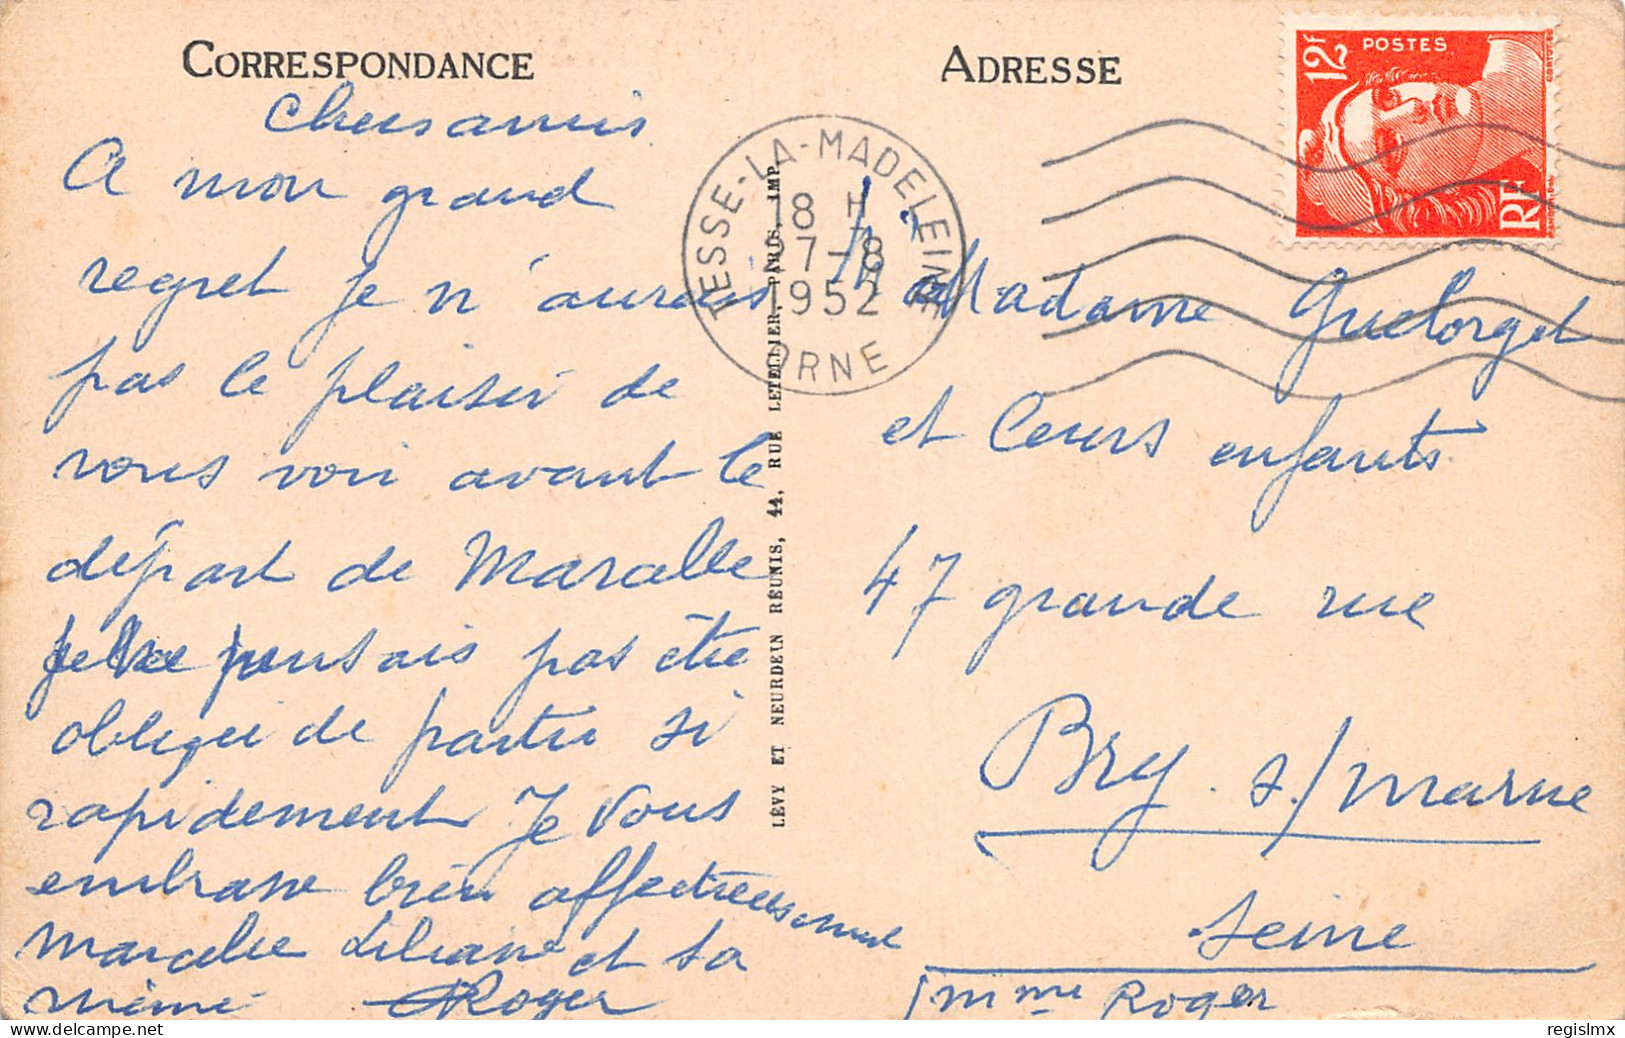 CORRESPONDANCE
Chers amis
A mon grand
regret je n'aurais
pas le plaisir de
vous voir avant le
départ de Marcelle
je ne pensais pas être
obligée de partir si
rapidement Je vous
embrasse bien affectueusement
Marcelle Liliane et sa
mémé Roger
LÉVY ET NEURDEIN RÉUNIS, 44, RUE LETELLIER, PARIS, IMP.
ADRESSE
POSTES
12F
RF
TESSE-LA-MADELEINE
18 H
27-8
1952
ORNE
Madame Guelorget
et Leurs enfants
47 grande rue
Bry s/Marne
Seine
Mme Roger
regislmx
delcampe.net